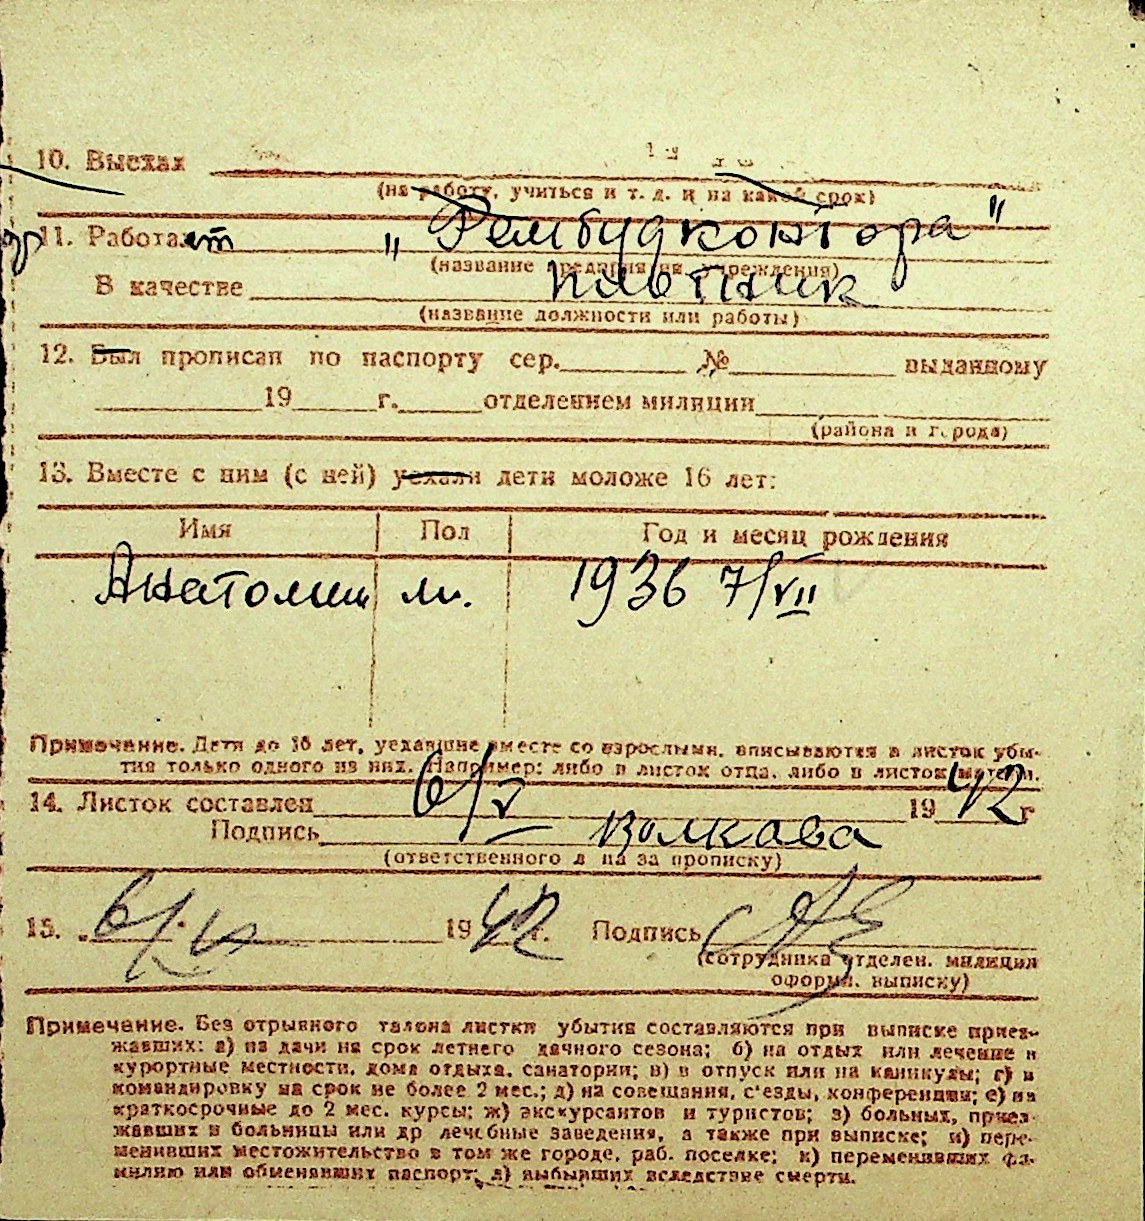 10. Выехал
(на работу, учиться и т. д. и на какой срок)
11. Работает „Рембудконтора"
(название предприятия, учреждения)
В качестве
(название должности или работы)
12. Был прописан по паспорту сер. № выданному
19 г. отделением милиции
(района и города)
13. Вместе с ним (с ней) уехали дети моложе 16 лет:
Имя Пол Год и месяц рождения
Анатолий м. 1936 7/VII
Примечание. Дети до 16 лет, уехавшие вместе со взрослыми, вписываются в листок убы-
тия только одного из них. Например: либо в листок отца, либо в листок матери.
14. Листок составлен 6/V 1942 г
Подпись Волкова
(ответственного л на за прописку)
15. 6/ 1942 г. Подпись
(сотрудника отделен. милиции
оформ. выписку)
Примечание. Без отрывного талона листки убытия составляются при выписке приез-
жавших: а) на дачи на срок летнего дачного сезона; б) на отдых или лечение в
курортные местности, дома отдыха, санатории; в) в отпуск или на каникулы; г) в
командировку на срок не более 2 мес.; д) на совещания, с'езды, конференции; е) на
краткосрочные до 2 мес. курсы; ж) экскурсантов и туристов; з) больных, приез-
жавших в больницы или др лечебные заведения, а также при выписке; и) пере-
менивших местожительство в том же городе, раб. поселке; к) переменивших фа-
милию или обменявших паспорт; л) выбывших вследствие смерти.